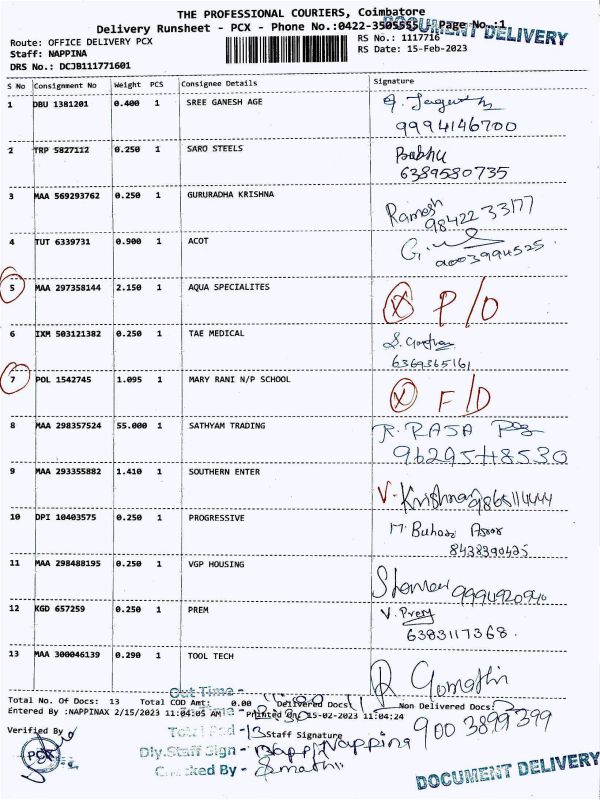 THE PROFESSIONAL COURIERS, Coimbatore
Delivery Runsheet - PCX - Phone No.:0422-3505555 Page No.:1
DOCUMENT DELIVERY
Route: OFFICE DELIVERY PCX RS No.: 1117716
Staff: NAPPINA RS Date: 15-Feb-2023
DRS No.: DCJB111771601
S No Consignment No Weight PCS Consignee Details Signature
1 DBU 1381201 0.400 1 SREE GANESH AGE
9994146700
2 TRP 5827112 0.250 1 SARO STEELS Babhu
6389580735
3 MAA 569293762 0.250 1 GURURADHA KRISHNA Ramesh
98422 33177
4 TUT 6339731 0.900 1 ACOT
5 MAA 297358144 2.150 1 AQUA SPECIALITES X P/O
6 IXM 503121382 0.250 1 TAE MEDICAL
6369365161
7 POL 1542745 1.095 1 MARY RANI N/P SCHOOL X F/D
8 MAA 298357524 55.000 1 SATHYAM TRADING R. RAJA
9629548530
9 MAA 293355882 1.410 1 SOUTHERN ENTER V. Krishna 9865114444
10 DPI 10403575 0.250 1 PROGRESSIVE
8438390425
11 MAA 298488195 0.250 1 VGP HOUSING 9994920940
12 KGD 657259 0.250 1 PREM V. Prem
6383117368.
13 MAA 300046139 0.290 1 TOOL TECH R Gomathi
900 3899399
Total No. Of Docs: 13 Total COD Amt: 0.00 Delivered Docs: 11 Non Delivered Docs: 2
Entered By :NAPPINAX 2/15/2023 11:04:05 AM Printed On 15-02-2023 11:04:24
Out Time -
Time -
Total Pod - 13
Verified By Staff Signature
PCX
Dly.Staff Sign - Nappi Nappina
Checked By -
DOCUMENT DELIVERY